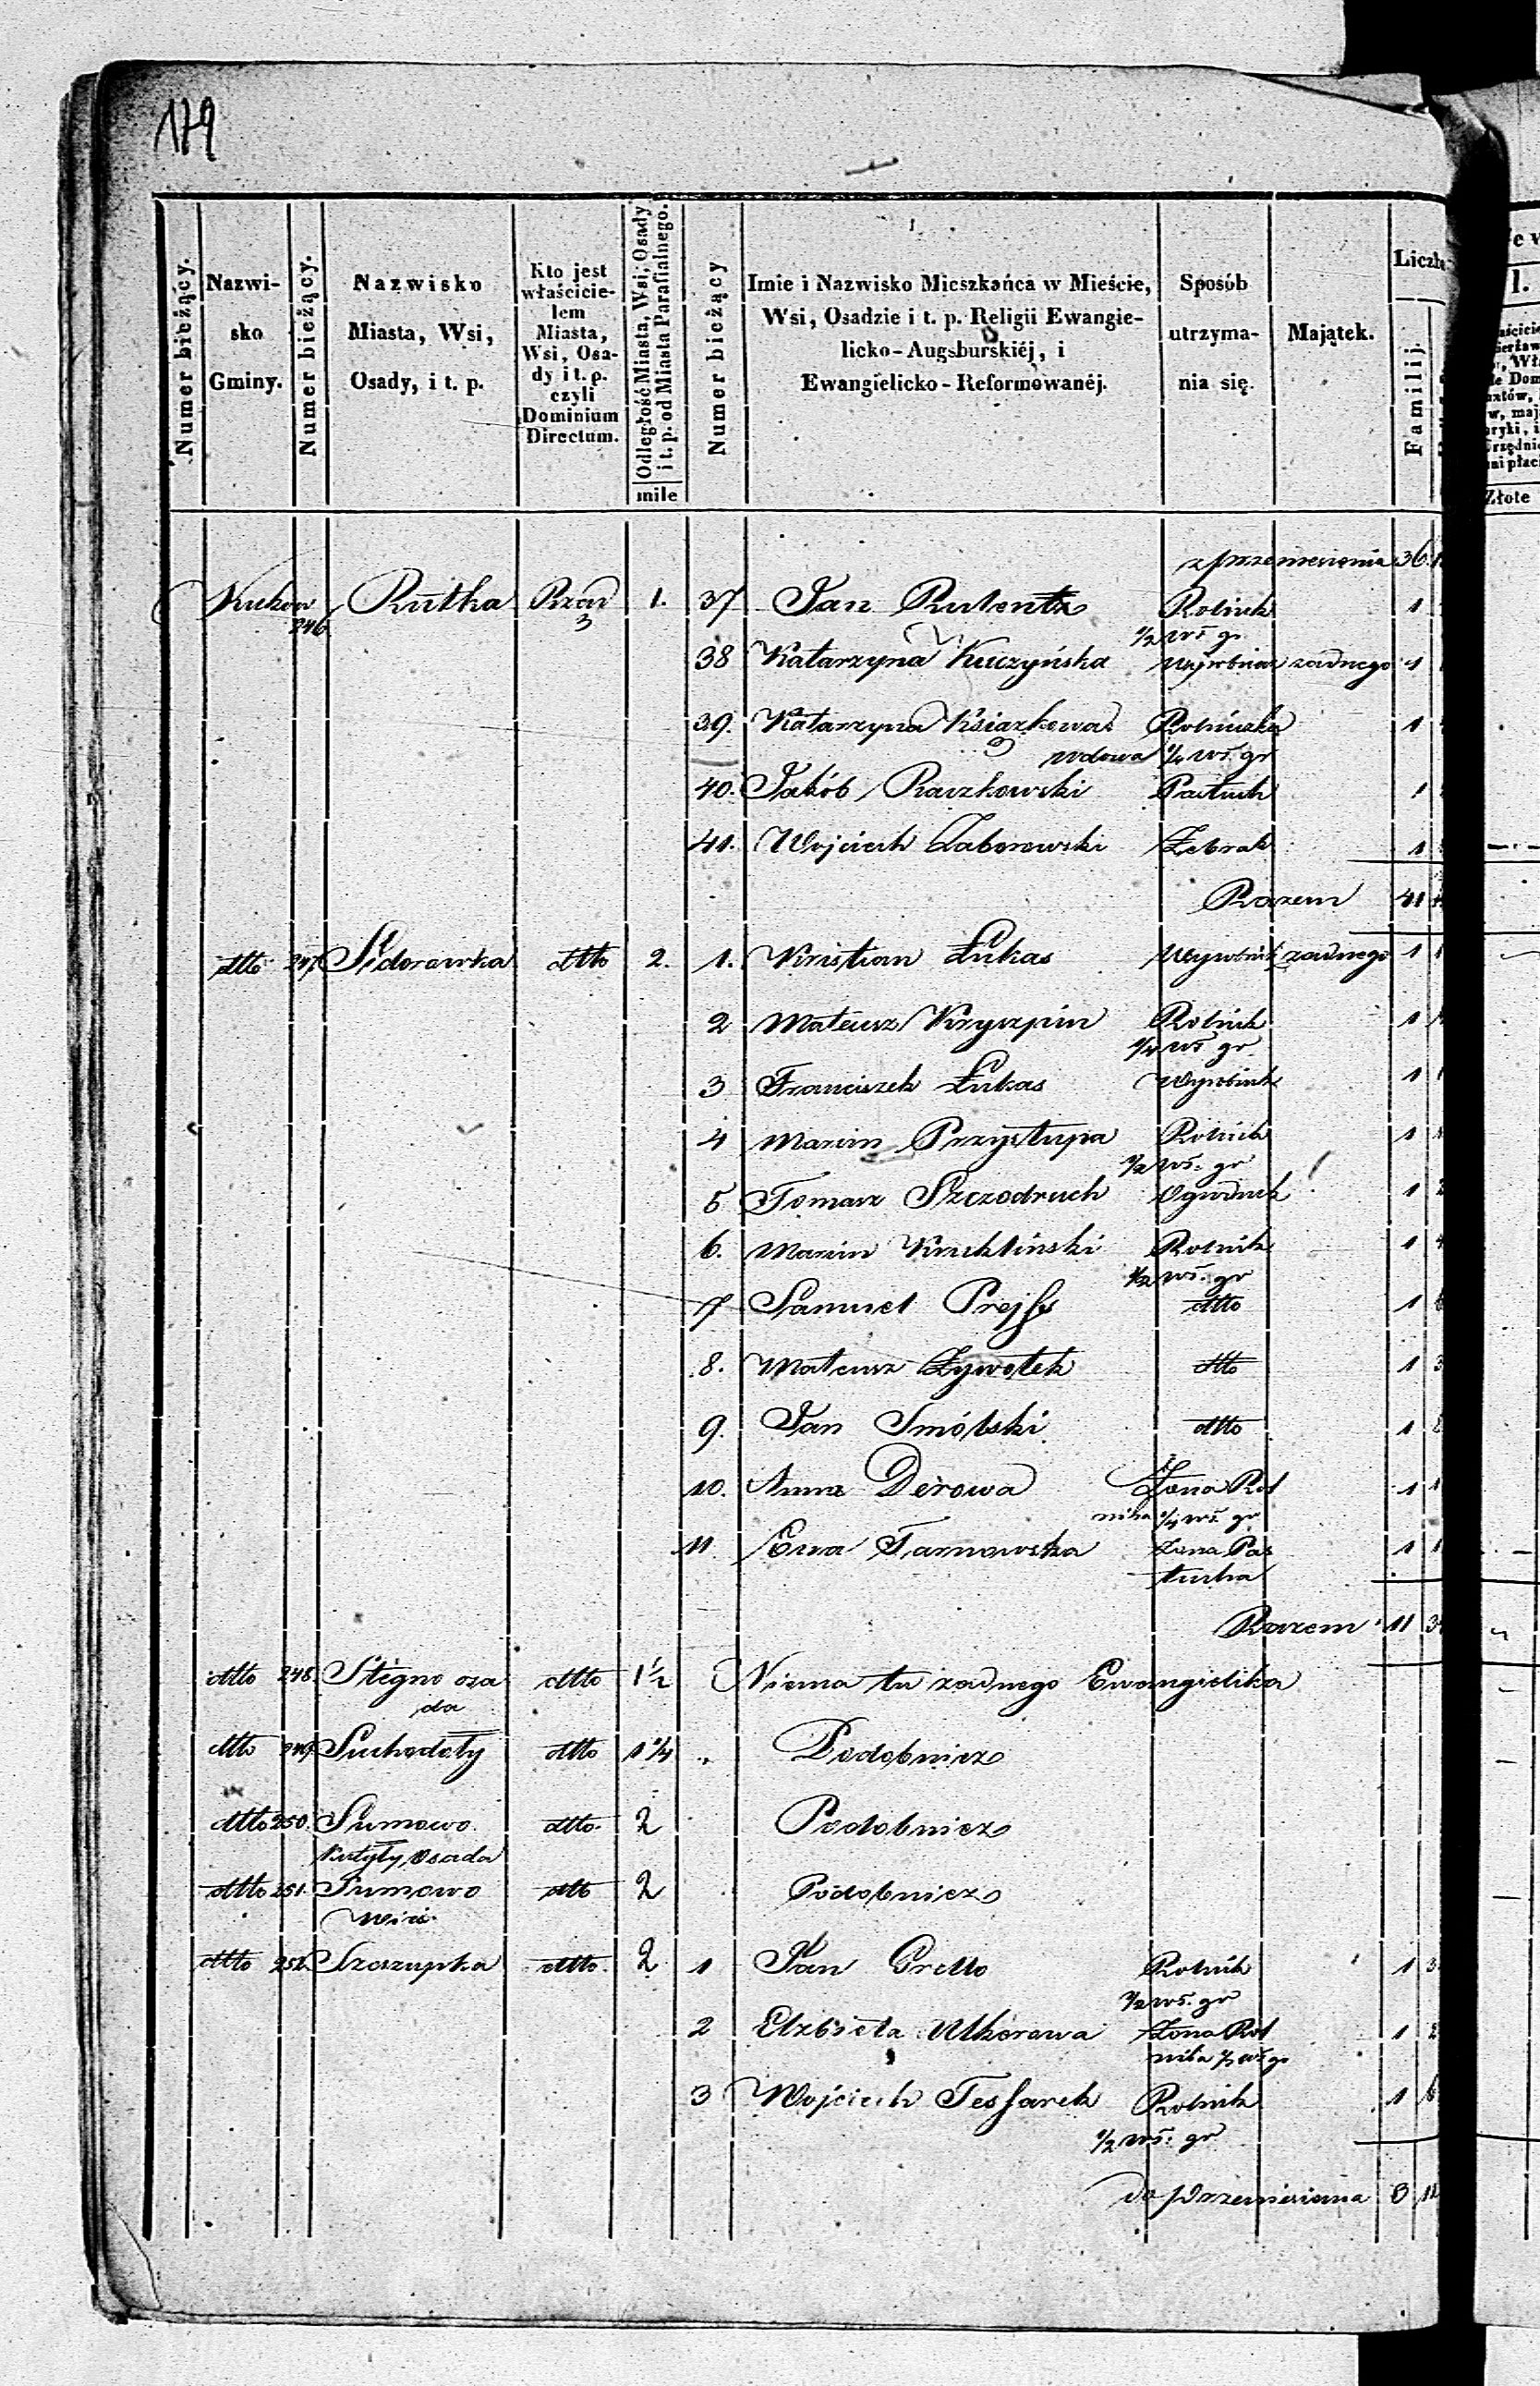 179
Numer bieżący.
Nazwi-
sko
Gminy.
Numer bieżący.
Nazwisko
Miasta, Wsi,
Osady, i t. p.
Kto jest
właścicie-
lem
Miasta,
Wsi, Osa-
dy i t. p.
czyli
Dominium
Directum.
Odległość Miasta, Wsi, Osady
i t. p. od Miasta Parafialnego.
mile
Numer bieżący
Imie i Nazwisko Mieszkańca w Mieście,
Wsi, Osadzie i t. p. Religii Ewangie-
licko-Augsburskiéj, i
Ewangielicko-Reformowanéj.
Sposób
utrzyma-
nia się.
Majątek.
Familij.
Złote
z przeniesienia 36
Kukow 246 Rutka Rząd 1. 37 Jan Rutentz Rolnik 1
1/2 wł gr
38 Katarzyna Kuczyńska Wyrobnica żadnego 1
39. Katarzyna Ksiazkowa Rolniczka 1
wdowa 1/4 wł. gr
40. Jakób Raczkowski Pastuch 1
41. Wojciech Zaborowski Żebrak 1
Razem 41
dtto 247 Sidorawka dtto 2. 1. Kristian Łukas Wyrobnik żadnego 1
2 Mateusz Kryszpin Rolnik 1
1/4 wł gr
3 Franciszek Łukas Wyrobnik 1
4 Marcin Przystupa Rolnik 1
1/2 wł. gr
5 Tomasz Szczodruch Ogrodnik 1
6. Marcin Krukliński Rolnik 1
1/2 wł. gr
7 Samuel Prejss dtto 1
8. Mateusz Żywotek dtto 1
9. Jan Smólski dtto 1
10. Anna Derowa Żona Rol 1
nika 1/4 wł. gr
11 Ewa Tarnowska Żona Pas 1
tucha
Razem 11
dtto 248. Stegno osa dtto 1 1/2 Niema tu żadnego Ewangielika
da
dtto 249 Suchodoły dtto 1 1/4 Podobnież
dtto 250. Sumowo dtto 2 Podobnież
Kutyły, Osada
dtto 251. Sumowo dtto 2 Podobnież
Wieś
dtto 252 Szczupka dtto 2 1 Jan Gretto Rolnik 1
1/2 wł. gr
2 Elzbieta Utkorowa Żona Rol 1
nika 1/2 wł. gr
3 Wojciech Tessarek Rolnik 1
1/2 wł. gr
do przeniesienia 3